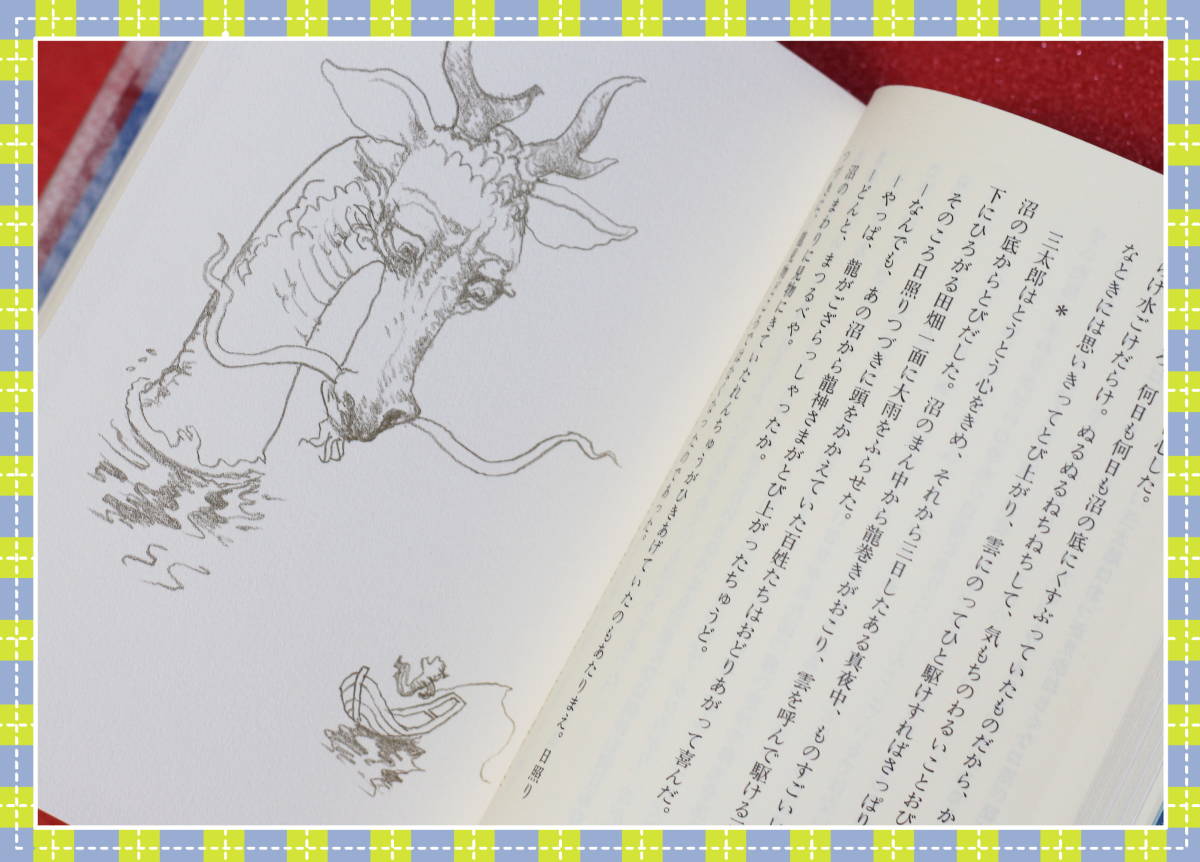 何日も何日も沼の底にくすぶっていたものだから、か
け水ごけだらけ。ぬるぬるねちねちして、気もちのわるいことおび
なときには思いきってとび上がり、雲にのってひと駆けすればさっぱり
した。
＊
三太郎はとうとう心をきめ、それから三日したある真夜中、ものすごいい
沼の底からとびだした。沼のまん中から龍巻きがおこり、雲を呼んで駆ける
下にひろがる田畑一面に大雨をふらせた。
そのころ日照りつづきに頭をかかえていた百姓たちはおどりあがって喜んだ。
―なんでも、あの沼から龍神さまがとび上がったちゅうど。
―やっぱ、龍がござらっしゃったか。
―どんと、まつるべや。
沼のまわりに見物にきていたれんちゅうがひきあげていたのもあたりまえ。日照り